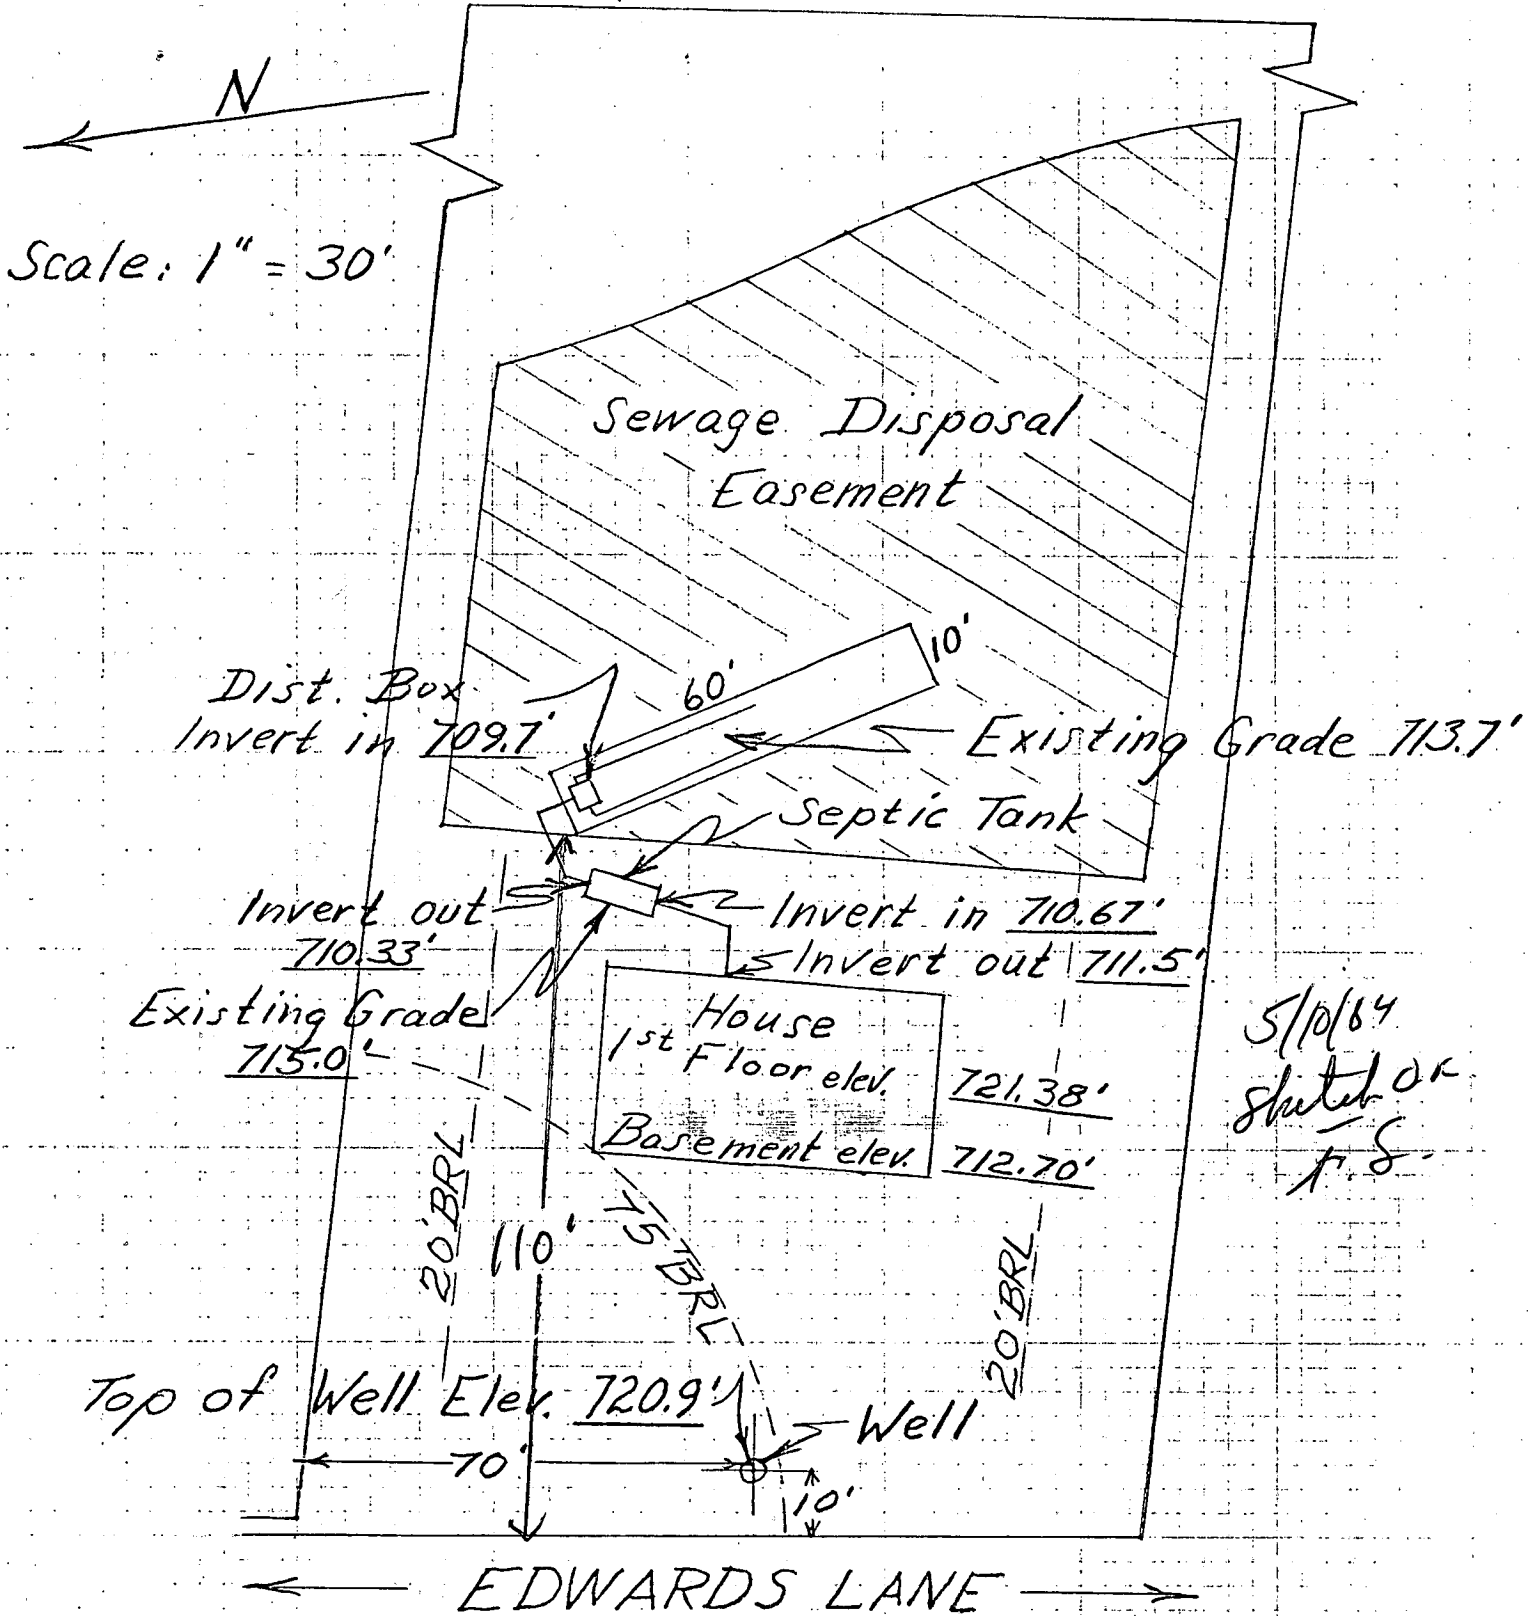 N
Scale: 1" = 30'
Sewage Disposal
Easement
10'
60'
Dist. Box
Invert in 709.7'
Existing Grade 713.7'
Septic Tank
Invert out
710.33'
Invert in 710.67'
Invert out 711.5'
Existing Grade
715.0'
House
1st Floor elev. 721.38'
Basement elev. 712.70'
sketch OK
20' BRL
110'
75' BRL
20' BRL
Top of Well Elev. 720.9'
Well
70'
10'
EDWARDS LANE